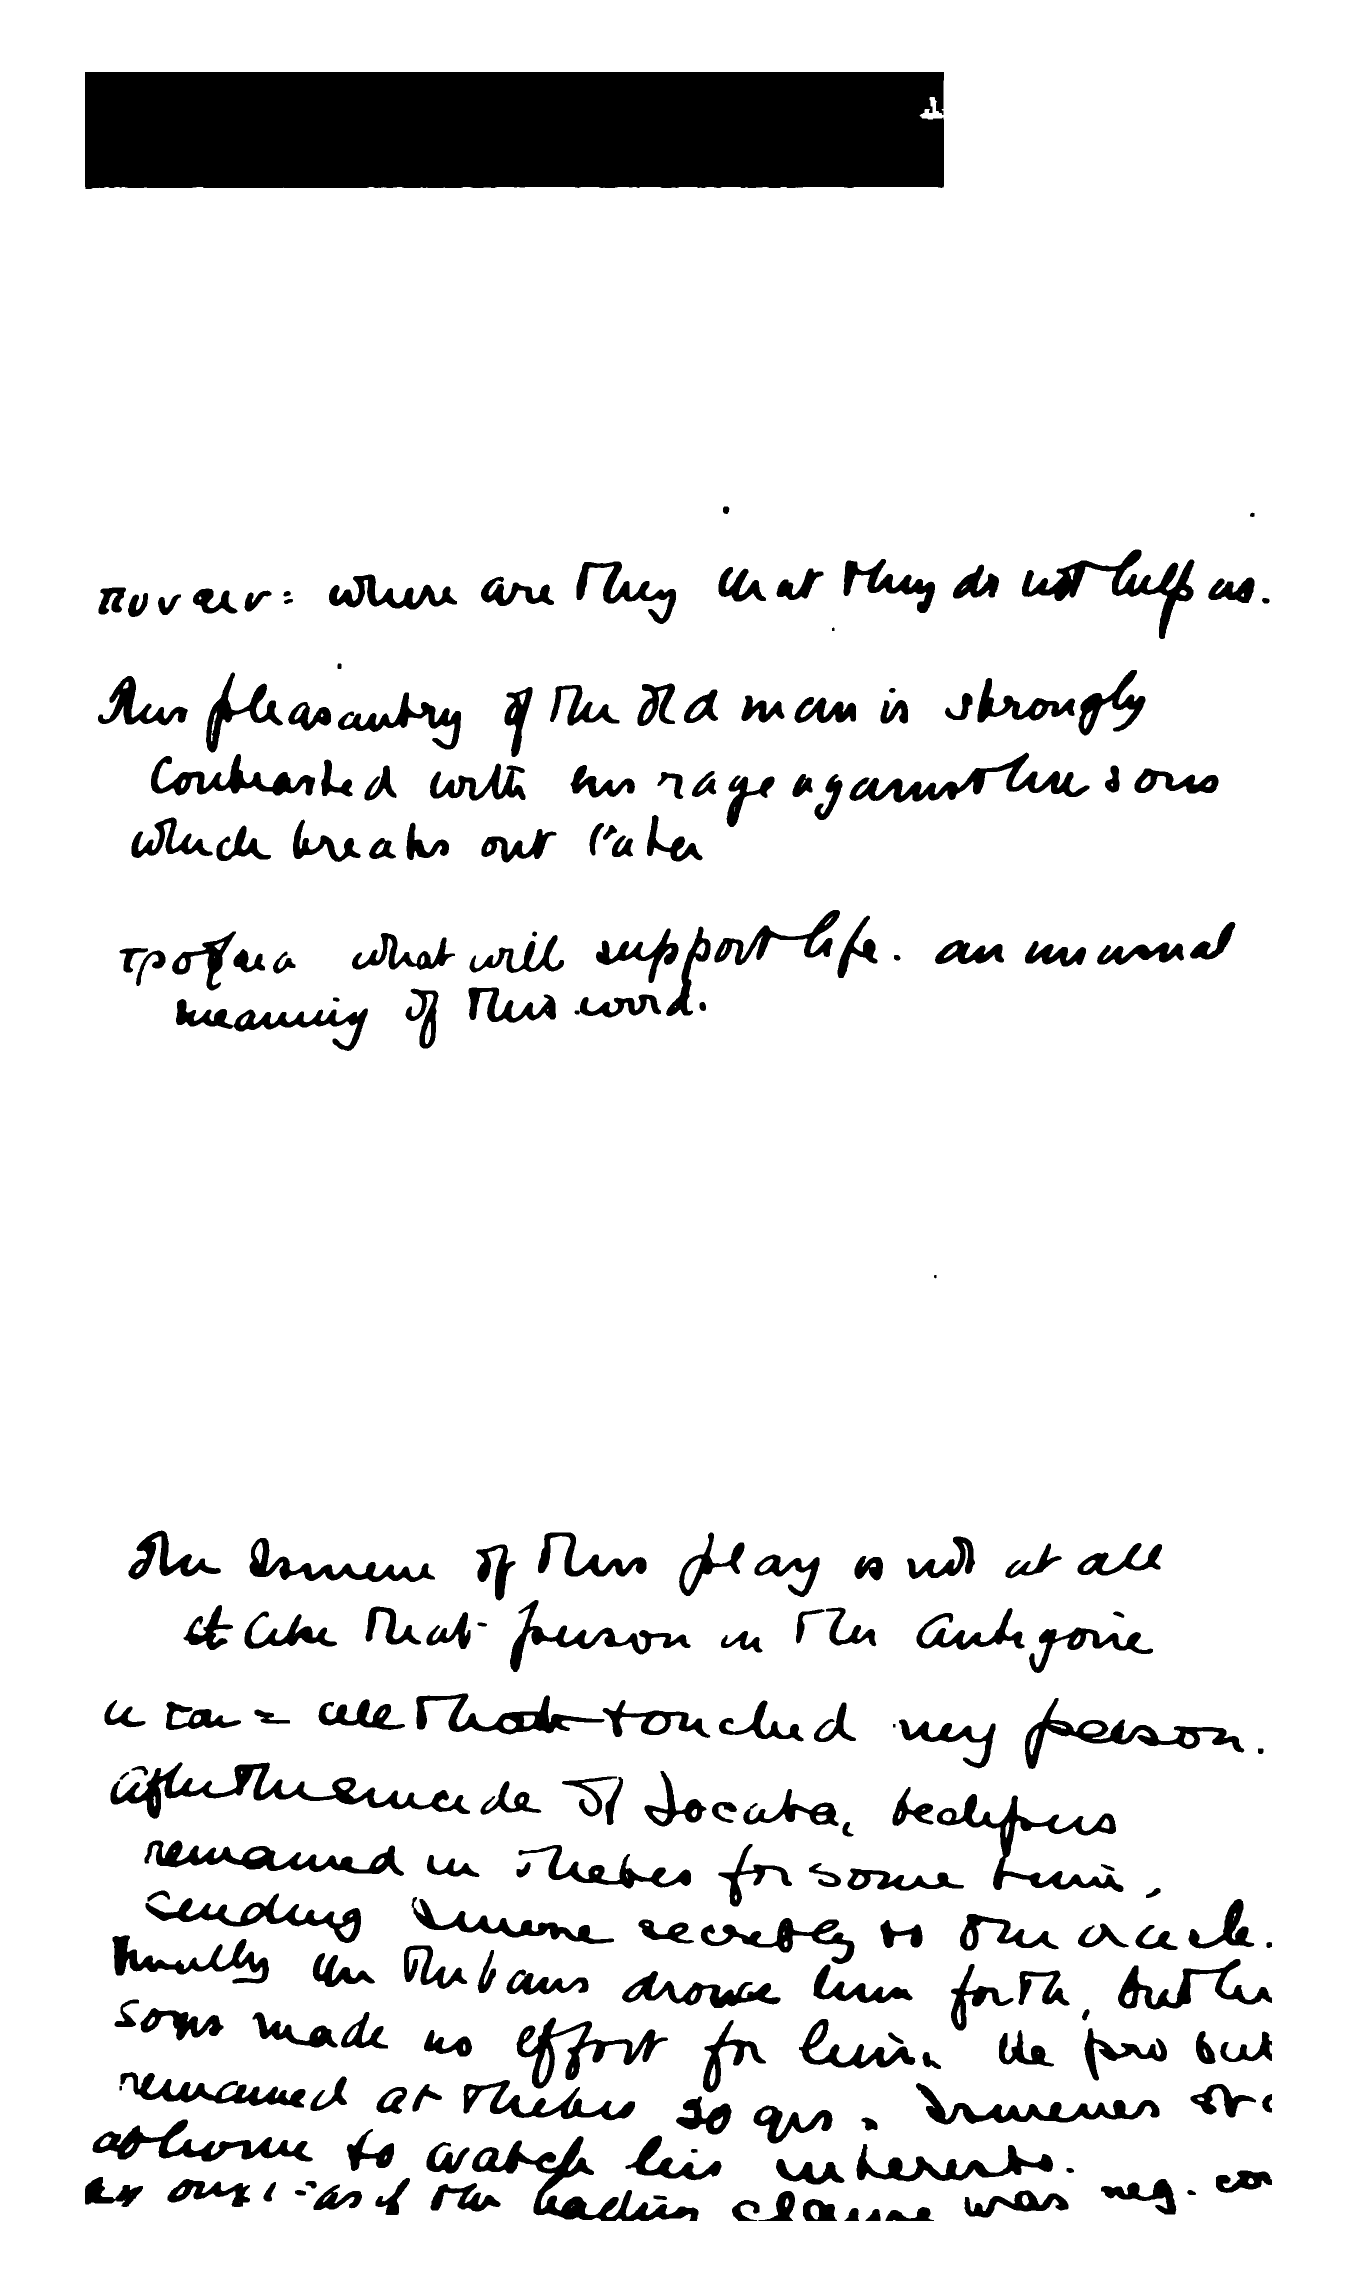 πονειν = where are they that they do not help us.
This pleasantry of the old man is strongly
Contrasted with his rage against the sons
which breaks out later
τροφεια what will support life. an unusual
meaning of this word.
The Ismene of this play is not at all
like that person in the Antigone
= all that touched my person.
After the suicide of Jocasta, Oedipus
remained in Thebes for some time,
sending Ismene secretly to the oracle.
Finally the Thebans drove him forth, but his
sons made no effort for him. He
remained at Thebes 20 yrs. Ismenes
at home to watch his interests.
= as if the leading clause was neg.